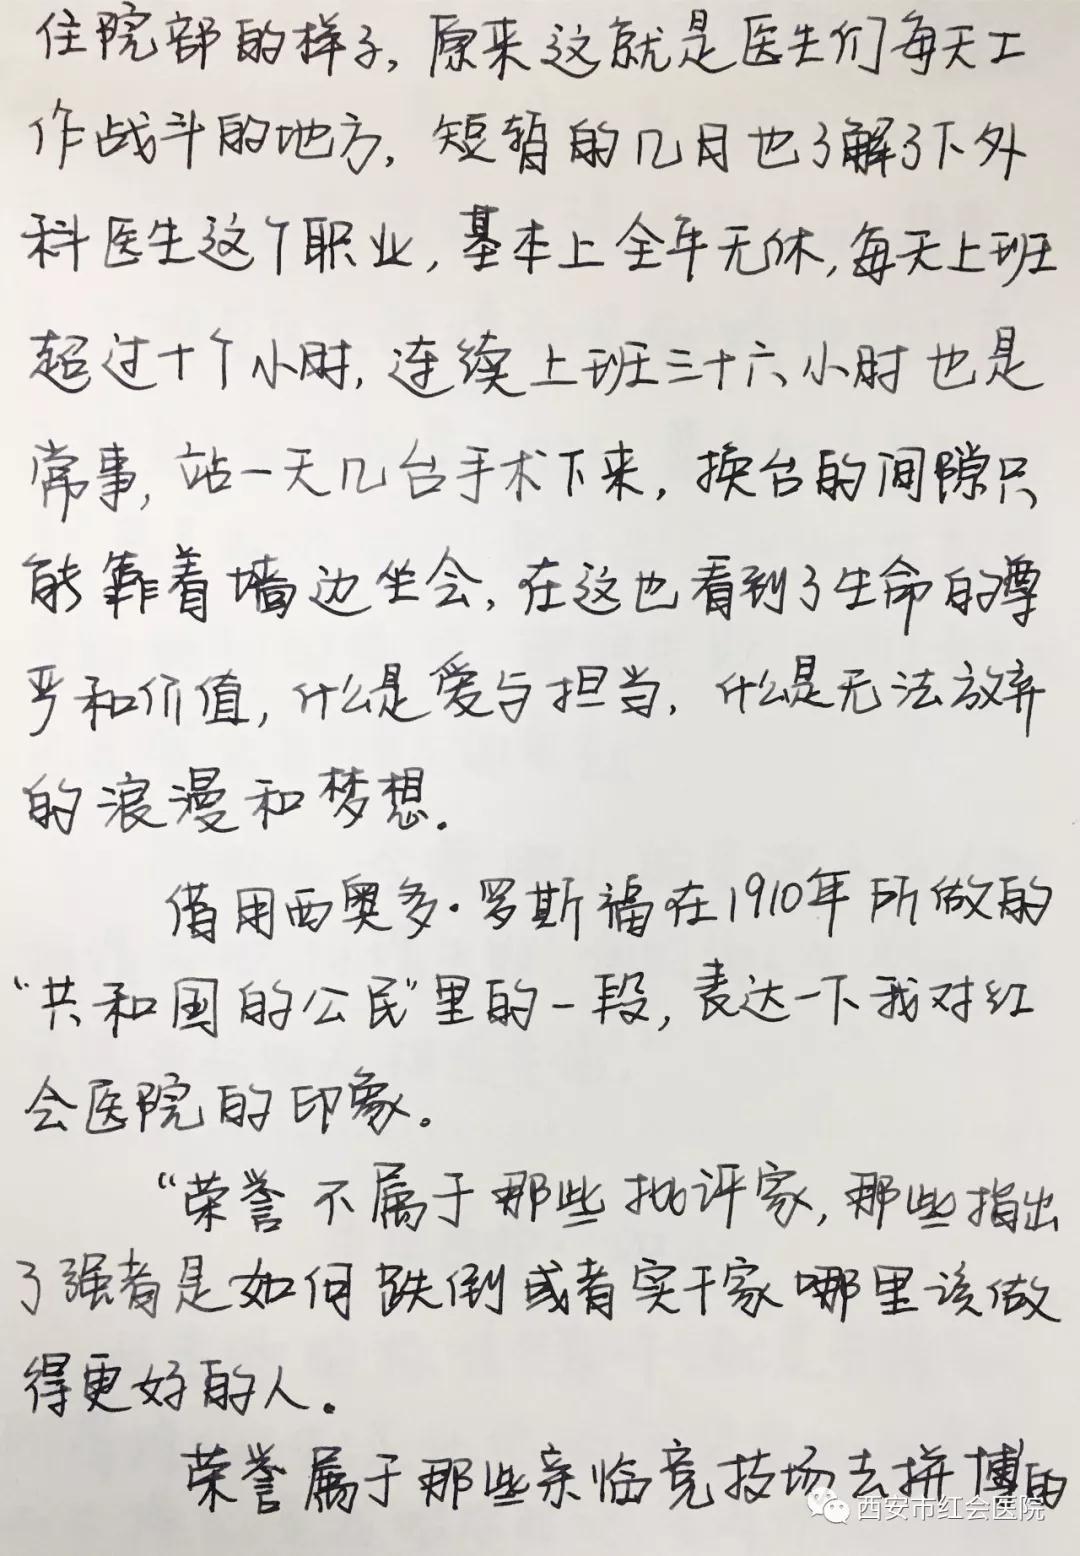 住院部的样子，原来这就是医生们每天工
作战斗的地方，短暂的几月也了解了下外
科医生这个职业，基本上全年无休，每天上班
超过十个小时，连续上班三十六小时也是
常事，站一天几台手术下来，换台的间隙只
能靠着墙边坐会，在这也看到了生命的尊
严和价值，什么是爱与担当，什么是无法放弃
的浪漫和梦想。
借用西奥多·罗斯福在1910年所做的
“共和国的公民”里的一段，表达一下我对红
会医院的印象。
“荣誉不属于那些批评家，那些指出
了强者是如何跌倒或者实干家哪里该做
得更好的人。
荣誉属于那些亲临竞技场去拼博的
西安市红会医院